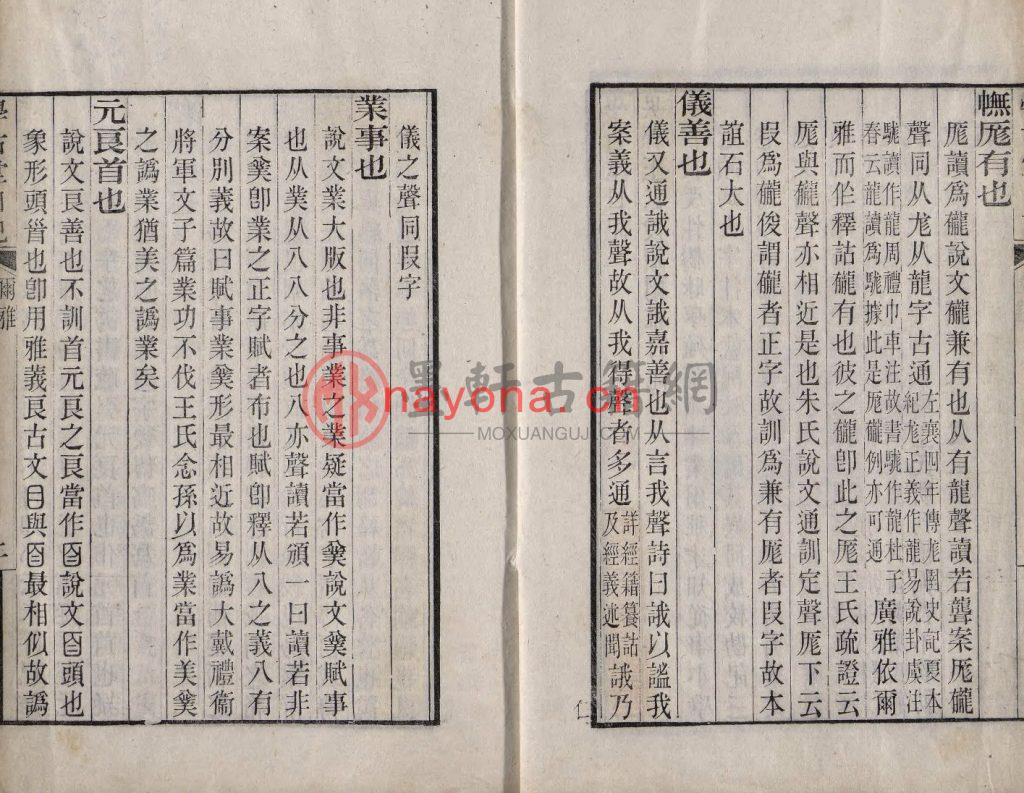 幠厖有也
厖讀爲龓說文龓兼有也从有龍聲讀若聾案厖龓
聲同从尨从龍字古通左襄四年傳尨圉史記夏本
紀尨正義作龍易說卦虞注
駹讀作龍周禮巾車注故書駹作龍杜子
春云龍讀爲駹據此是厖龓例亦可通
廣雅依爾
雅而作釋詁龓有也彼之龓卽此之厖王氏疏證云
厖與龓聲亦相近是也朱氏說文通訓定聲厖下云
叚爲龓俊謂龓者正字故訓爲兼有厖者叚字故本
誼石大也
儀善也
儀又通誐說文誐嘉善也从言我聲詩曰誐以謐我
案義从我聲故从我得聲者多通詳經籍籑詁
及經義述聞
誐乃
仁
儀之聲同叚字
業事也
說文業大版也非事業之業疑當作䑑說文䑑賦事
也从菐从八八分之也八亦聲讀若頒一曰讀若非
案䑑卽業之正字賦者布也賦卽釋从八之義八有
分別義故曰賦事業䑑形最相近故易譌大戴禮衞
將軍文子篇業功不伐王氏念孫以爲業當作美䑑
之譌業猶美之譌業矣
元良首也
說文良善也不訓首元良之良當作𦣻說文𦣻頭也
象形頭𦣻也卽用雅義良古文目與𦣻最相似故譌
爾雅
墨軒古籍網
nayona.cn
MOXUANGUJI.COM